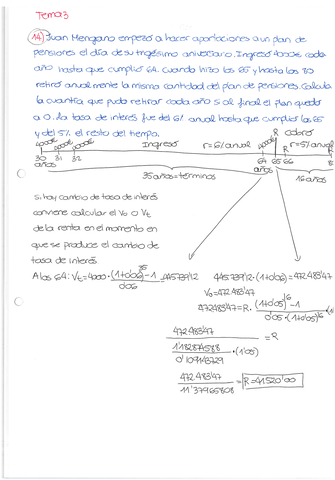 Tema 3
14) Juan Mengano empezó a hacer aportaciones a un plan de
pensiones el día de su trigésimo aniversario. Ingresó 4000€ cada
año hasta que cumplió 64. Cuando hizo los 65 y hasta los 80
retiró anualmente la misma cantidad del plan de pensiones. Calcula
la cuantía que pudo retirar cada año si al final el plan quedó
a 0. La tasa de interés fue del 6% anual hasta que cumplió los 65
y del 5% el resto del tiempo.
R cobro
4000€ 4000€ 4000€ Ingreso r=6% anual 4000€ R r=5% anual
30 31 32 64 65 66
años años
35 años = términos 16 años
Si hay cambio de tasa de interés
conviene calcular el V₀ o Vt
de la renta en el momento en
que se produce el cambio de
tasa de interés
A los 64: Vt = 4000 · (1+0'06)³⁵ - 1 / 0'06 = 445739'12
445.739'12 · (1+0'06) = 472.483'47
V₀ = 472.483'47
472.483'47 = R · (1+0'05)¹⁶ - 1 / 0'05 · (1+0'05)¹⁶
472.483'47 = R
1'182874588 · (1'05)
0'109143729
472.483'47 = R = 41.520'00
11'37965808